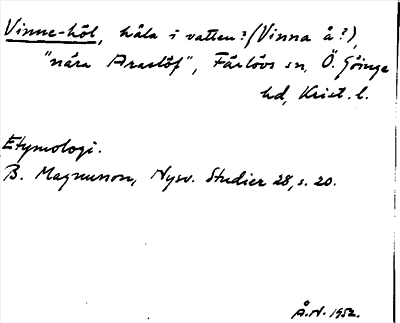 Vinne-hôl, håla i vatten? (Vinna å?),
"nära Araslöf", Färlövs sn, Ö. Göinge
hd, Krist. l.
Etymologi.
B. Magnusson, Nysv. Studier 28, s. 20.
Å.N. 1952.